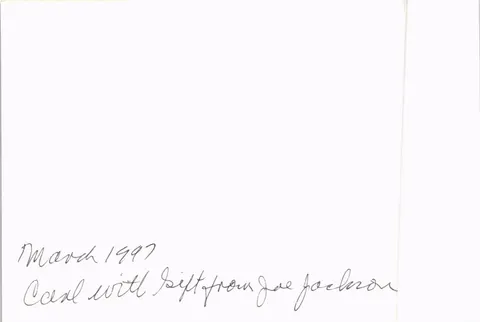 March 1997
Carl with Gift from Joe Jackson